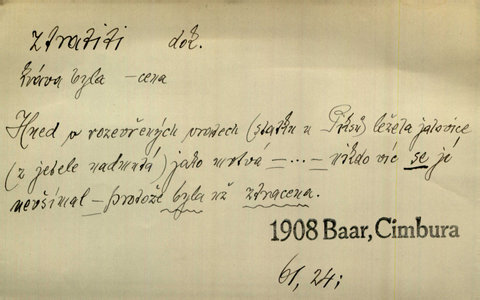 ztratiti dok.
kráva byla -cena
Hned v rozevřených vratech (statku u Piksů) ležela jalovice
(z jetele nadmutá) jako mrtvá -...- nikdo víc se jí
nevšímal - protože byla už ztracena.
1908 Baar, Cimbura
61, 24;